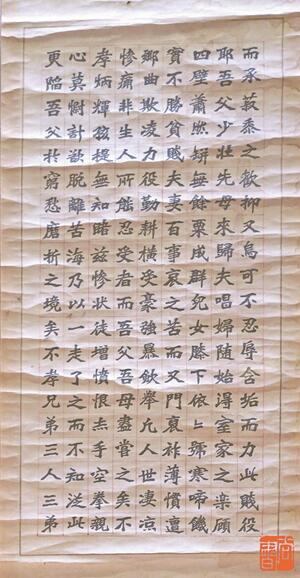 而承菽黍之歡抑又烏可不忍辱含垢而力此賤役
耶吾父少壯先母來歸夫唱婦隨始得室家之樂顧
四壁蕭然缾無餘粟成群兒女膝下依々號寒啼饑
實不勝貧賤夫妻百事哀之苦而又門衰祚薄慣遭
鄉曲欺凌力役勤耕橫受豪強暴斂舉凡人世凄凉
慘痛非生人所能忍受者而吾父吾母盡嘗之矣不
孝炳輝孩提無知睹茲慘狀徒增憤恨赤手空拳親
心莫慰計欲脫離苦海乃以一走了之而不知從此
更陷吾父於窮愁磨折之境矣不孝兄弟三人三弟